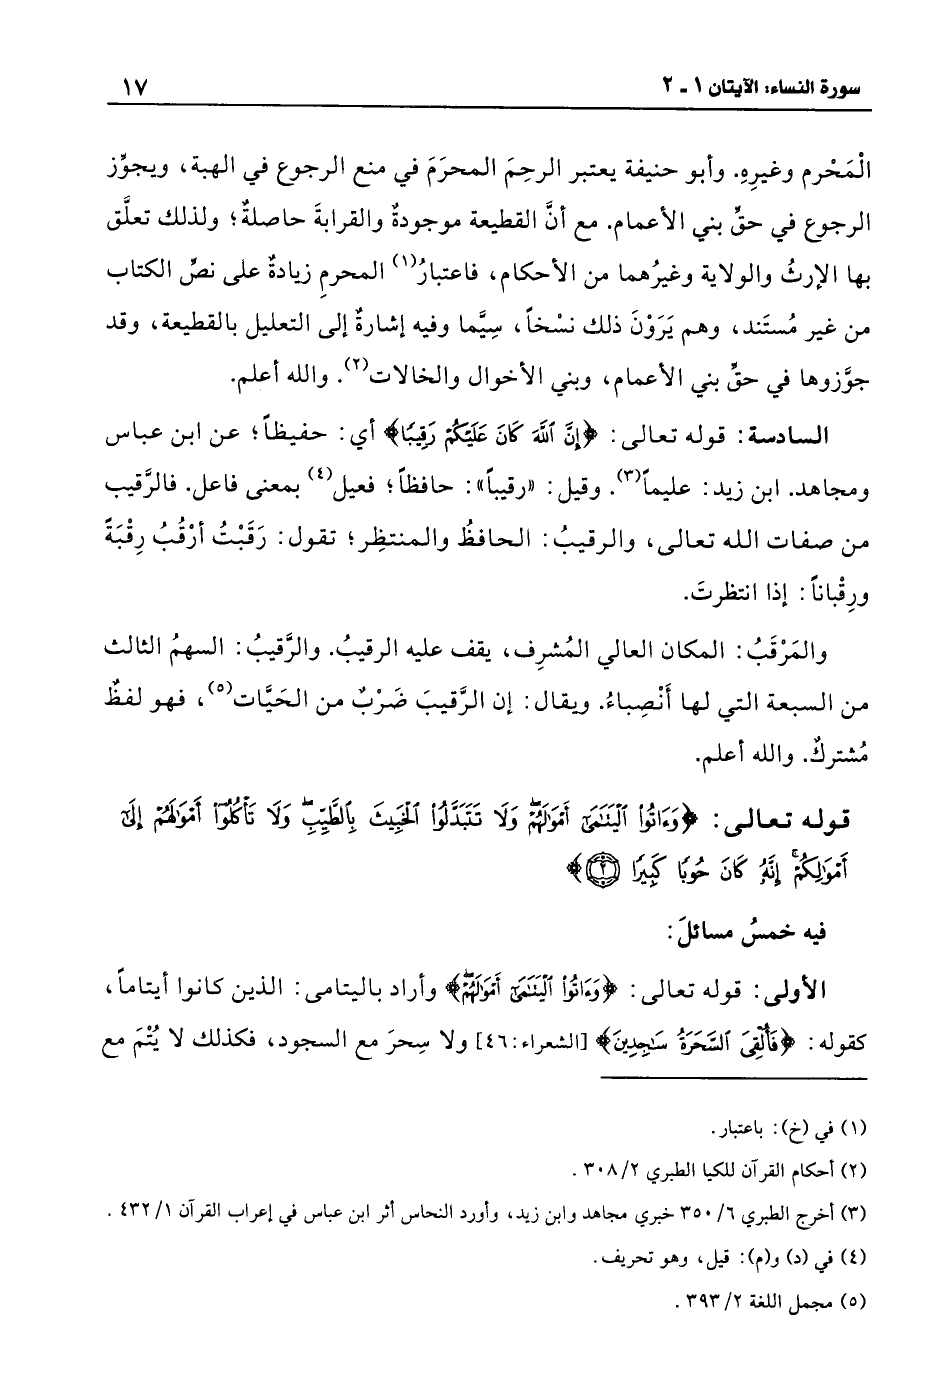 سورة النساء: الآيتان ١ - ٢ ١٧
الْمَحْرم وغيرِهِ. وأبو حنيفة يعتبر الرحِمَ المحرَمَ في منع الرجوع في الهبة، ويجوِّز
الرجوع في حقِّ بني الأعمام. مع أنَّ القطيعة موجودةٌ والقرابةَ حاصلةٌ؛ ولذلك تعلَّق
بها الإرثُ والولاية وغيرُهما من الأحكام، فاعتبارُ(١) المحرمِ زيادةٌ على نصِّ الكتاب
من غير مُستَند، وهم يَرَوْنَ ذلك نسْخاً، سِيَّما وفيه إشارةٌ إلى التعليل بالقطيعة، وقد
جوَّزوها في حقِّ بني الأعمام، وبني الأخوال والخالات(٢). والله أعلم.
السادسة: قوله تعالى: ﴿إِنَّ ٱللَّهَ كَانَ عَلَيْكُمْ رَقِيبًا﴾ أي: حفيظاً؛ عن ابن عباس
ومجاهد. ابن زيد: عليماً(٣). وقيل: «رقيباً»: حافظاً؛ فعيل(٤) بمعنى فاعل. فالرَّقيب
من صفات الله تعالى، والرقيبُ: الحافظُ والمنتظِر؛ تقول: رَقَبْتُ أرْقُبُ رِقْبَةً
ورِقْباناً: إذا انتظرتَ.
والمَرْقَبُ: المكان العالي المُشرِف، يقف عليه الرقيبُ. والرَّقيبُ: السهمُ الثالث
من السبعة التي لها أَنْصِباءُ. ويقال: إن الرَّقيبَ ضَرْبٌ من الحَيَّات(٥)، فهو لفظٌ
مُشتركٌ. والله أعلم.
قوله تعالى: ﴿وَءَاتُوا۟ ٱلْيَتَـٰمَىٰٓ أَمْوَٰلَهُمْ ۖ وَلَا تَتَبَدَّلُوا۟ ٱلْخَبِيثَ بِٱلطَّيِّبِ ۖ وَلَا تَأْكُلُوٓا۟ أَمْوَٰلَهُمْ إِلَىٰٓ
أَمْوَٰلِكُمْ ۚ إِنَّهُۥ كَانَ حُوبًا كَبِيرًا ۝٢﴾
فيه خمسُ مسائلَ:
الأولى: قوله تعالى: ﴿وَءَاتُوا۟ ٱلْيَتَـٰمَىٰٓ أَمْوَٰلَهُمْ ۖ﴾ وأراد باليتامى: الذين كانوا أيتاماً،
كقوله: ﴿فَأُلْقِىَ ٱلسَّحَرَةُ سَـٰجِدِينَ﴾ [الشعراء:٤٦] ولا سِحرَ مع السجود، فكذلك لا يُتْمَ مع
(١) في (خ): باعتبار.
(٢) أحكام القرآن للكيا الطبري ٢/ ٣٠٨ .
(٣) أخرج الطبري ٦/ ٣٥٠ خبري مجاهد وابن زيد، وأورد النحاس أثر ابن عباس في إعراب القرآن ١/ ٤٣٢ .
(٤) في (د) و(م): قيل، وهو تحريف.
(٥) مجمل اللغة ٢/ ٣٩٣ .